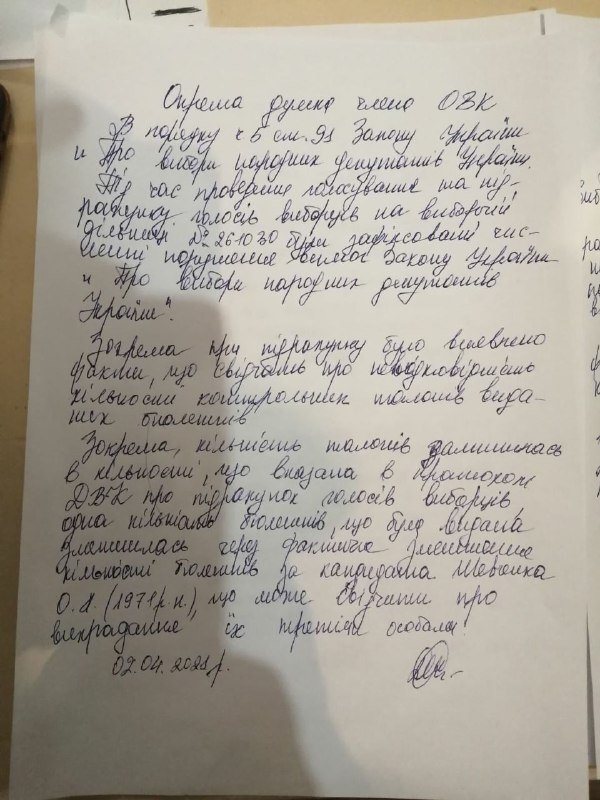 Окрема думка члена ОВК
В порядку ч 5 ст. 91 Закону України
" Про вибори народних депутатів України.
Під час проведення голосування та під-
рахунку голосів виборців на виборчій
дільниці № 261030 були зафіксовані чис-
ленні порушення вимог Закону України
" Про вибори народних депутатів
України".
Зокрема при підрахунку було виявлено
факти, що свідчать про невідповідність
кількості контрольних талонів вида-
них бюлетнів
Зокрема, кількість талонів залишилась
в кількості, що вказана в Протоколі
ДВК про підрахунок голосів виборців,
одна кількість бюлетнів, що була видана
зменшилась через фактичне зменшення
кількості бюлетнів за кандидата Шевченка
О. Л. (1971 р.н.), що може свідчити про
викрадення їх третіми особами.
02.04.2021 р.